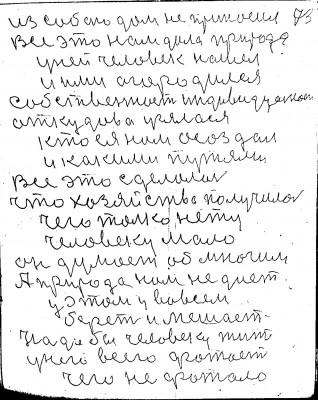 из собою дом не приносил 73
все это нам дала природа
у ней человек нашел
и ими огородился
собственност индивидуальност
откудова узялася
кто ея нам осоздал
и какими путями
все это сделалос
что хозяйства получилос
чего толко нету
человеку мало
он думает об многим
А природа нам не дает
у этом у вовсем
берет и мешает
Надо бы человеку жит
у него всего фотает
чего не фотало